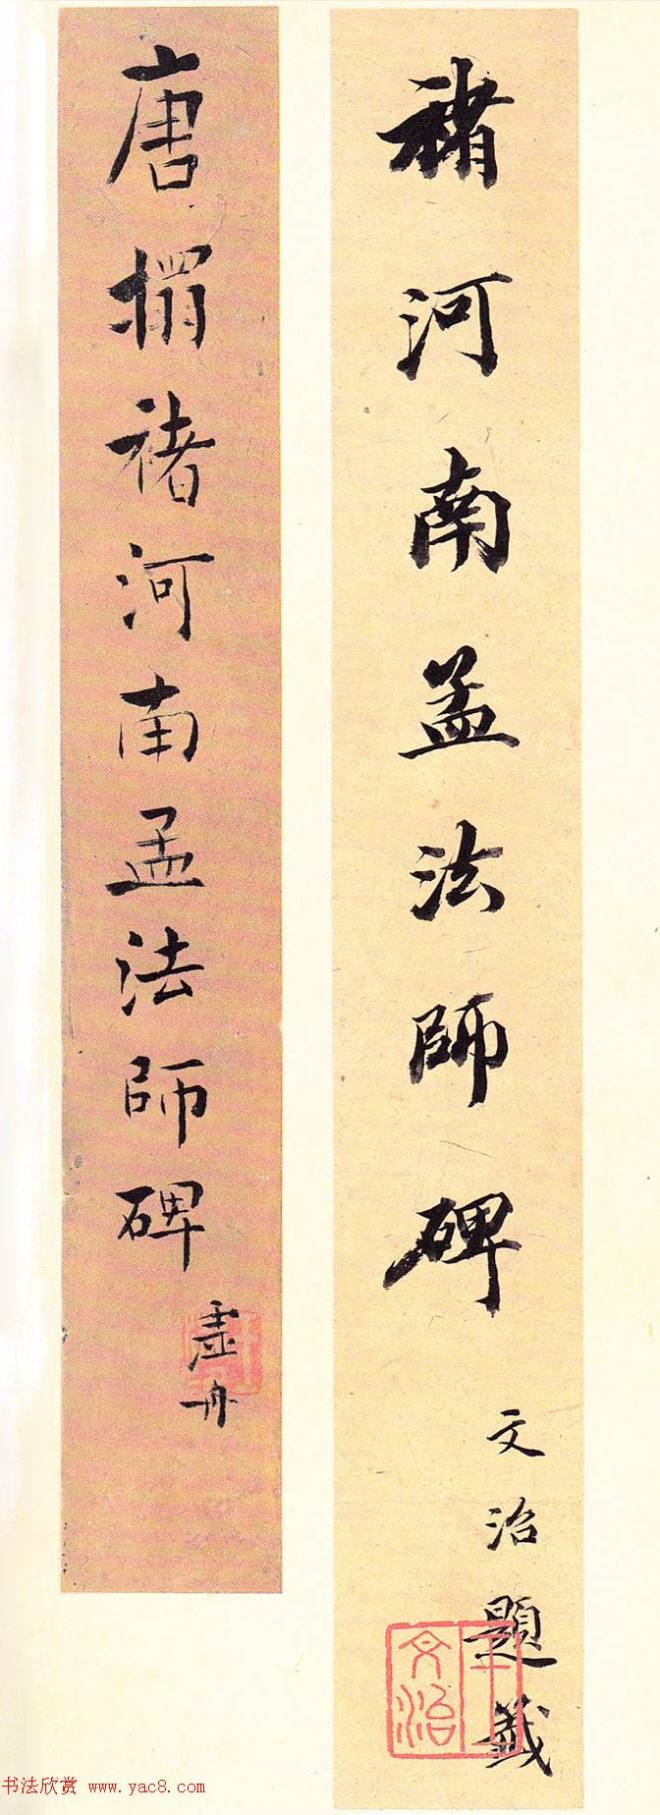 褚河南孟法師碑
文治題籤
王文治
唐搨褚河南孟法師碑
虛舟
书法欣赏 www.yac8.com